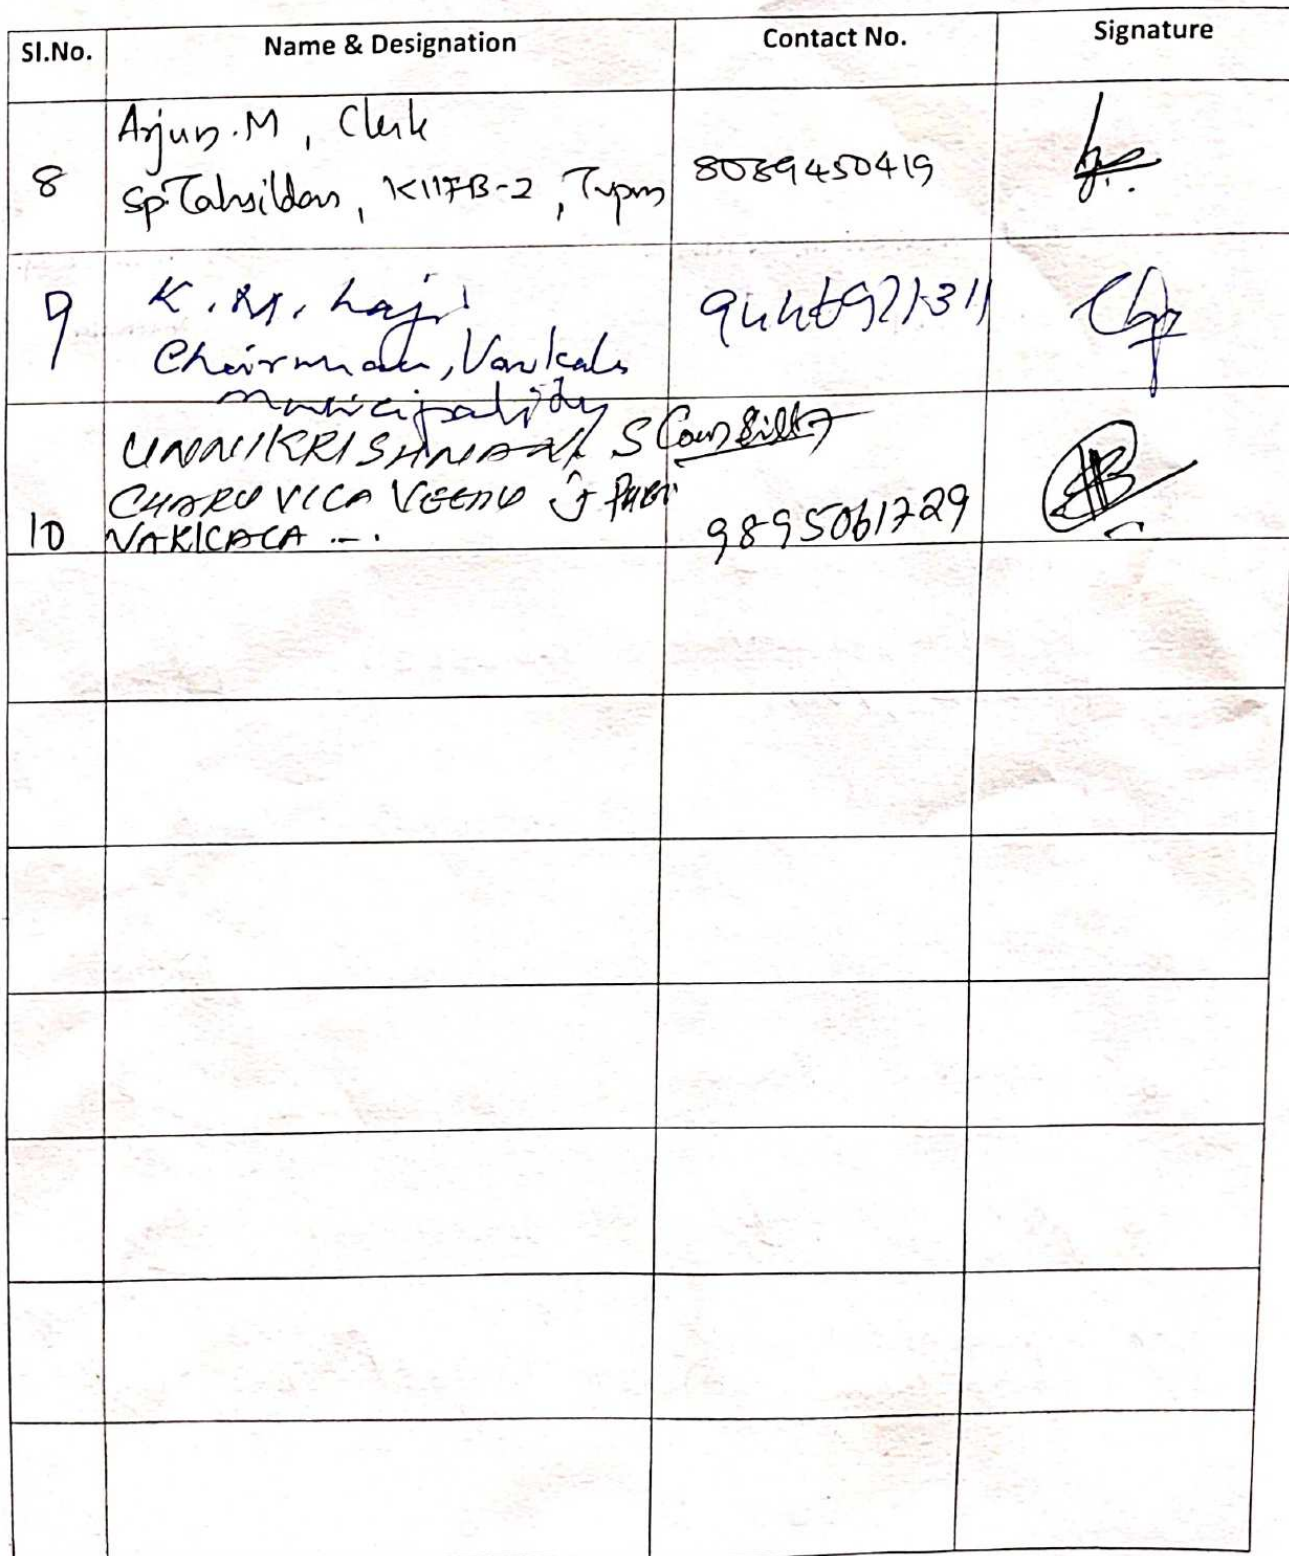 Sl.No. Name & Designation Contact No. Signature
8 Arjun.M, Clerk
Sp.Tahsildar, KIIFB-2, Tvpm 8089450419
9 K.M. Laji
Chairman, Varkala
Municipality
UNNIKRISHNAN S
CHARUVILA VEEDU
10 VARKALA 9895061729